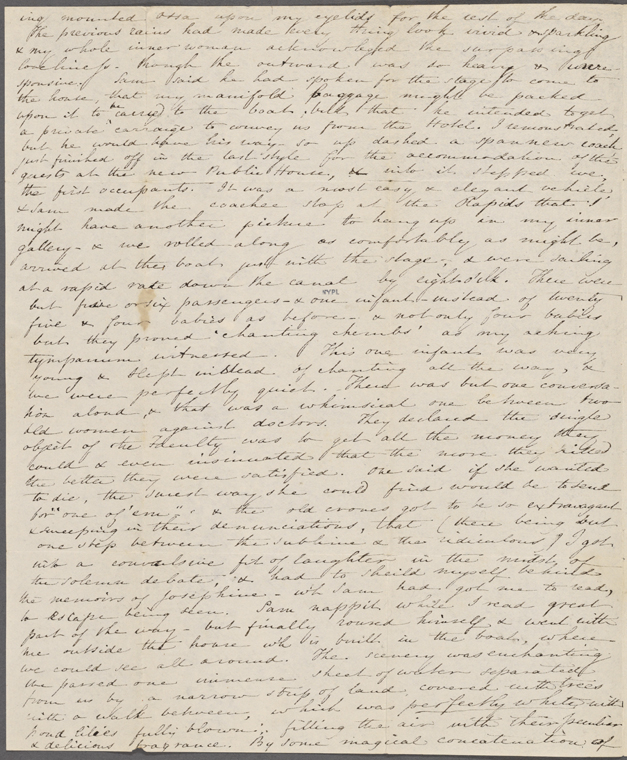 ing mounted ossa upon my eyelids for the rest of the day
The previous rains had made every thing look vivid & sparkling
& my whole inner woman acknowledged the surpassing
loveliness - though the outward was so heavy &
sponsive. Sam said he had spoken for the stage to come to
the house, that my manifold baggage might be packed
upon it to be carried to the boat, but that he intended to get
a private carriage to convey us from the Hotel. I remonstrated,
but he would have his way - so up dashed a span new coach
just finished off in the last style for the accommodation of the
guests at the new Public House, & into it stepped we,
the first occupants. It was a most easy & elegant vehicle
& Sam made the coachee stop at the Rapids that I
might have another picture to hang up in my inner
gallery - & we rolled along as comfortably as might be,
arrived at the boat just with the stage, & were sailing
at a rapid rate down the canal by eight o'clk. There were
but five or six passengers - & one infant instead of twenty
five & four babies as before - & not only four babies
but they proved 'chanting cherubs' as my aching
tympanum witnessed. This one infant was very
young & slept instead of chanting all the way, &
we were perfectly quiet. There was but one conversa-
tion aloud & that was a whimsical one between two
old women against doctors. They declared the single
object of the Faculty was to get all the money they
could & even insinuated that the more they killed
the better they were satisfied. One said if she wanted
to die, the surest way she could find would be to send
for "one of 'em" & the old crones got to be so extravagant
& sweeping in their denunciations, that (there being but
one step between the sublime & the ridiculous) I got
into a convulsive fit of laughter in the midst of
the solemn debate, & had to sheild myself behind
the memoirs of Josephine - wh Sam had got me to read,
to escape being seen. Sam nappit while I read great
part of the way - but finally roused himself & went with
me outside the house wh is built in the boat, where
we could see all around. The scenery was enchanting
We passed one immense sheet of water separated
from us by a narrow strip of land, covered with trees
with a walk between, which was perfectly white with
pond lilies fully blown; filling the air with their peculiar
& delicious fragrance. By some magical concatenation of
NYPL